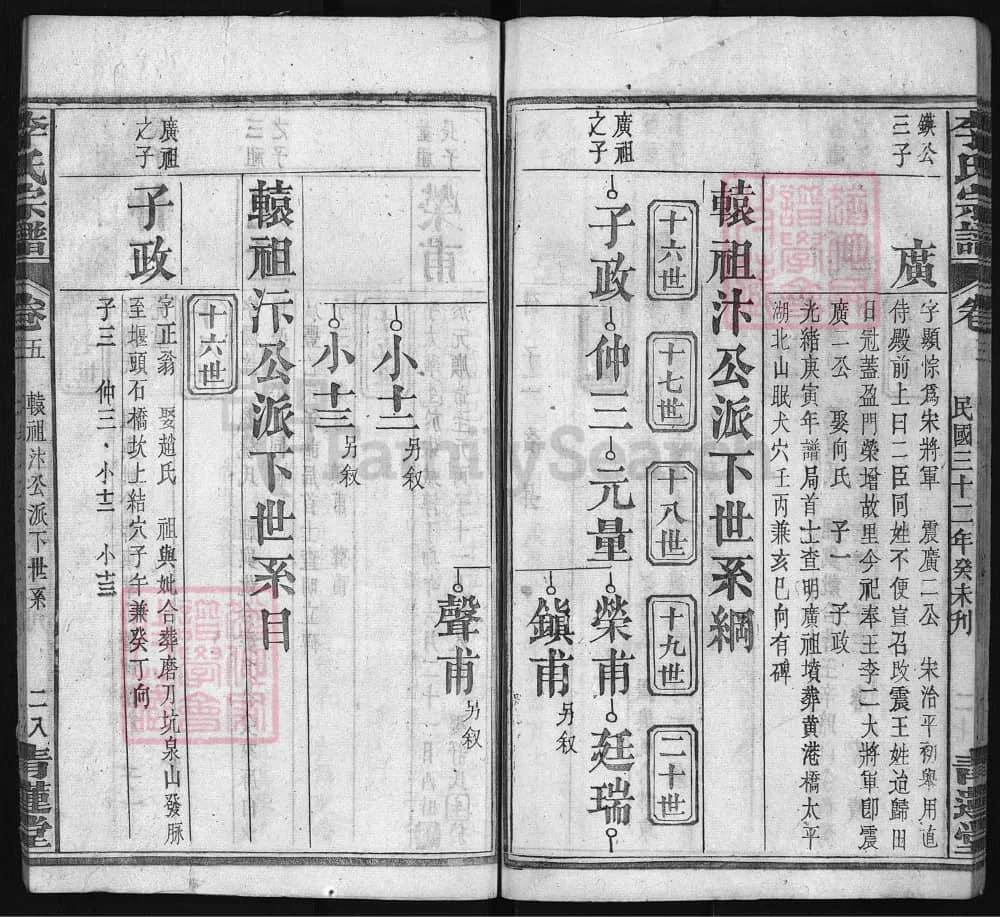 李氏宗譜
民國三十二年癸未刋
青蓮堂
鍈公三子
廣
字顯悰爲宋將軍 震廣二公 宋治平初舉用直
侍殿前上曰二臣同姓不便宣召改震王姓迨歸田
日冠蓋盈門榮增故里今祀奉王李二大將軍卽震
廣二公 娶向氏 子一 子政
光緒庚寅年譜局首士查明廣祖墳葬黃港橋太平
湖北山眠犬穴壬丙兼亥巳向有碑
轅祖汴公派下世系綱
十六世
十七世
十八世
十九世
二十世
廣祖之子
子政
仲三
元量
榮甫
廷瑞
鎭甫 另叙
聲甫 另叙
小十二 另叙
小十三 另叙
轅祖汴公派下世系目
十六世
廣祖之子
子政
字正翁 娶趙氏 祖與妣合葬磨刀坑泉山發脉
至堰頭石橋坎上結穴子午兼癸丁向
子三 仲三 小十二 小十三
李氏宗譜
卷五
轅祖汴公派下世系
二八
青蓮堂
FamilySearch